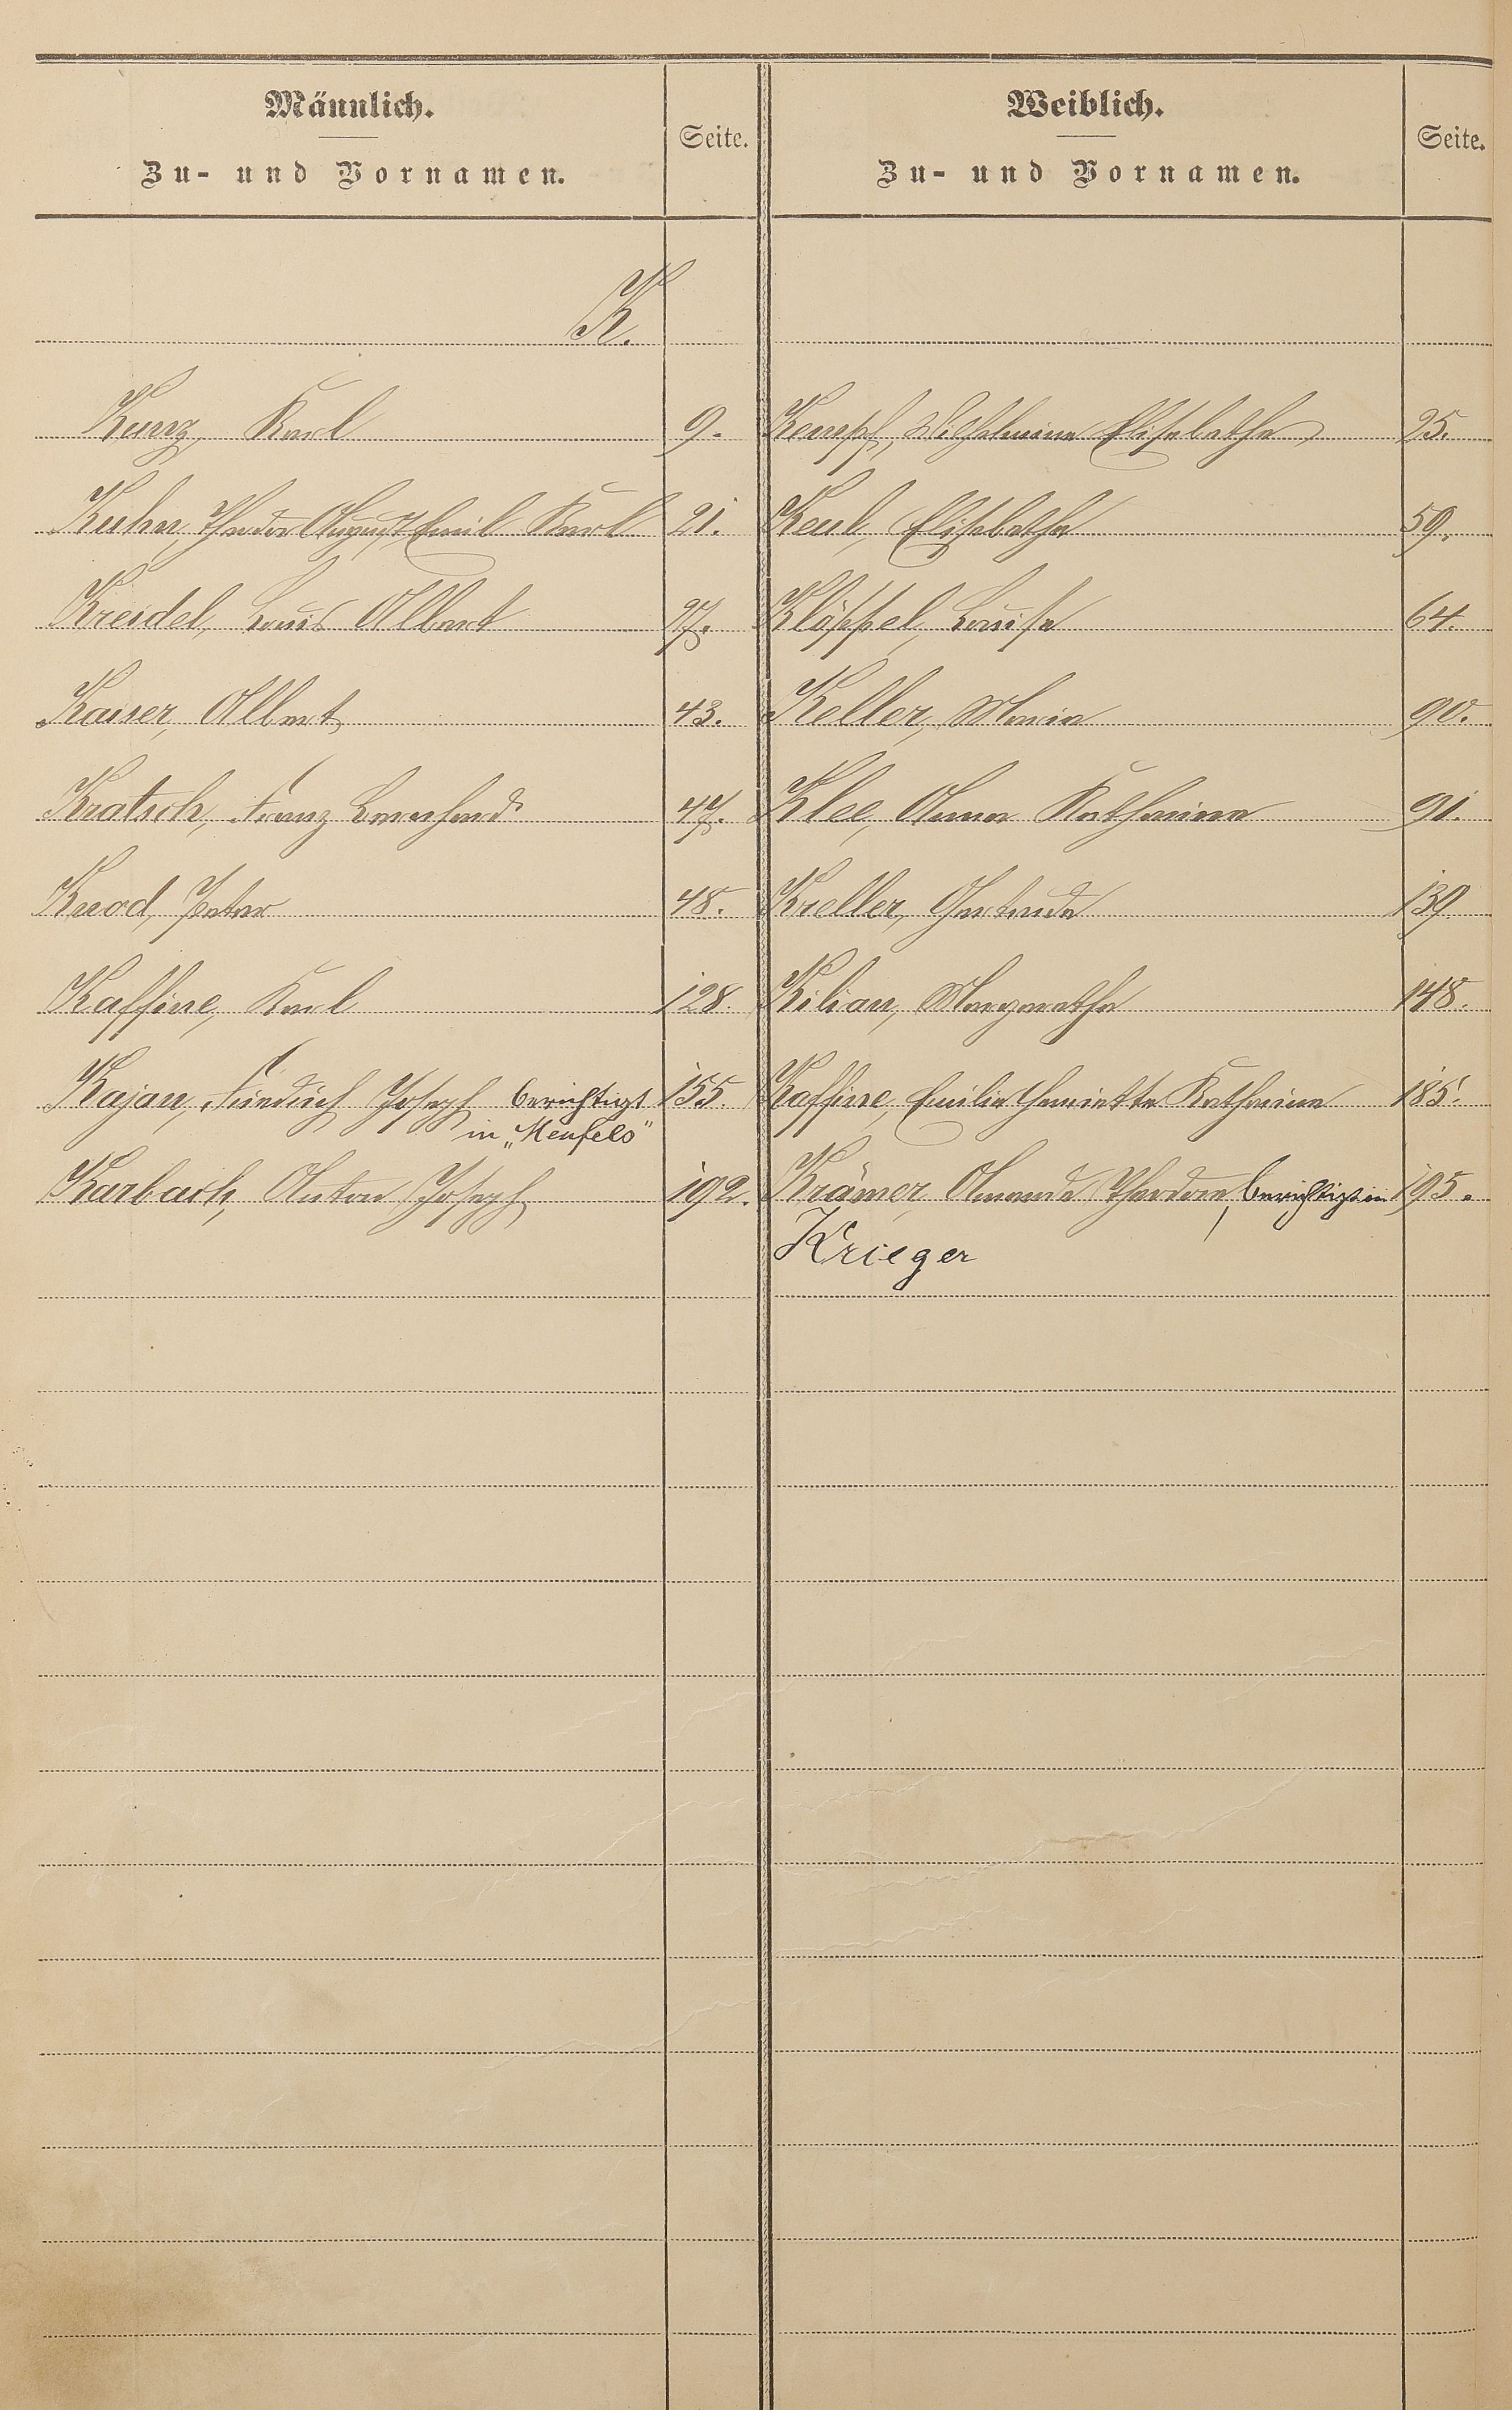 Männlich.
Zu- und Vornamen.
Seite.
Weiblich.
Zu- und Vornamen.
Seite.
K.
Kunz, Karl 9. Kempf, Wilhelmine Elisabetha 25.
Kuhn, Theodor August Emil Karl 21. Keul, Elisabetha 59.
Kreidel, Louis Albert 27. Klöppel, Louise 64.
Kaiser, Albert 43. Keller, Maria 90.
Kratsch, Franz Bernhard 47. Klee, Anna Katharina 91.
Knod, Peter 48. Kreller, Gertrude 139
Kaffine, Karl 128. Kilian, Margaretha 148.
Kajan, Friedrich Joseph berichtigt 155. Kaffine, Emilie Henriette Katharina 185.
in „Menfels"
Karbach, Anton Joseph 192. Krämer, Amanda Theodore, berichtigt in 195.
Krieger